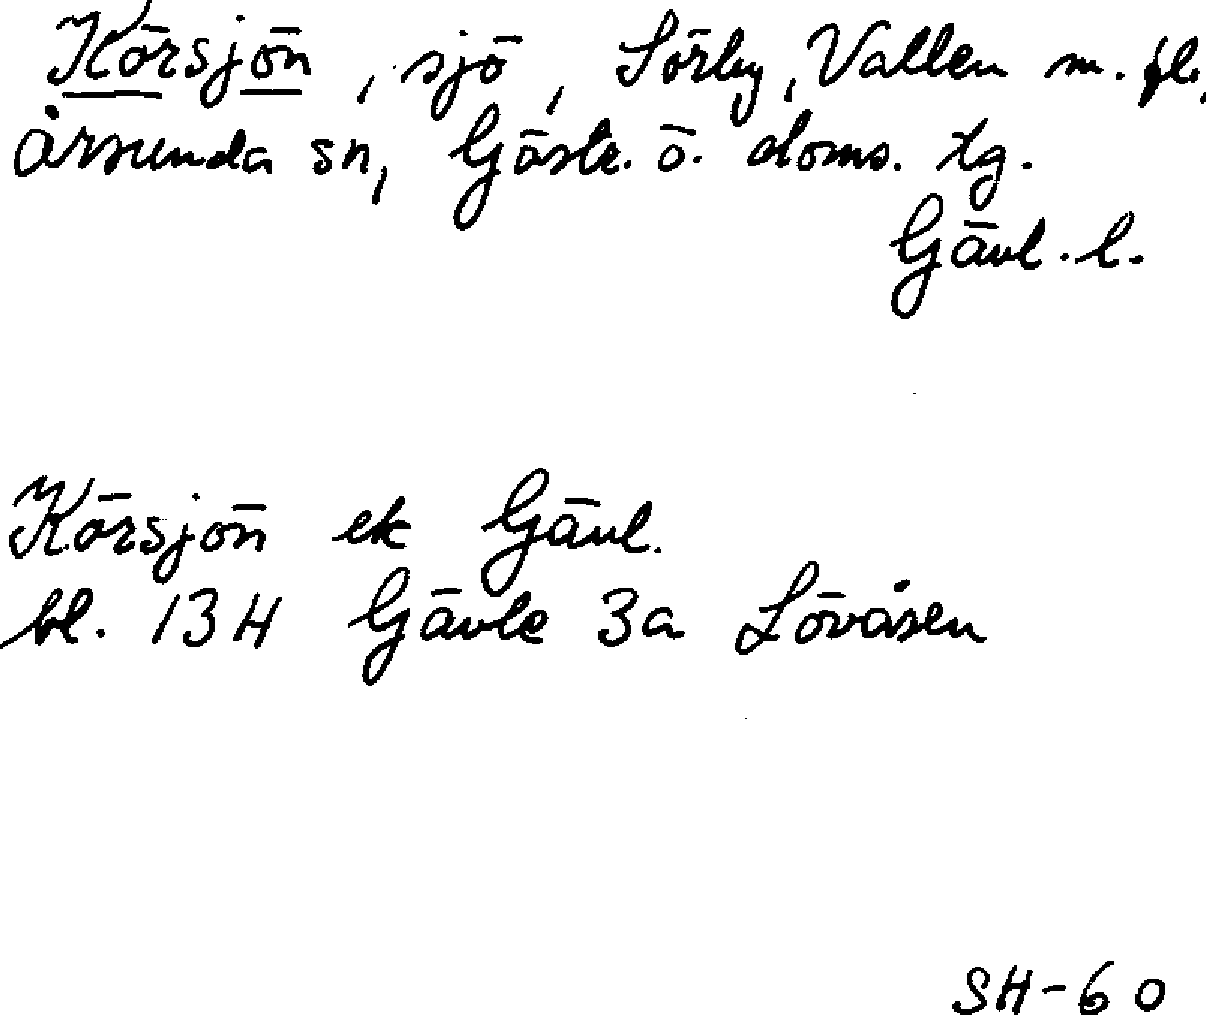 Körsjön, sjö, Sörby, Vallen m. fl,
Årsunda sn, Gästr. ö. doms. tg.
Gävl. l.
Körsjön ek Gävl.
bl. 13H Gävle 3a Lövåsen
SH-60